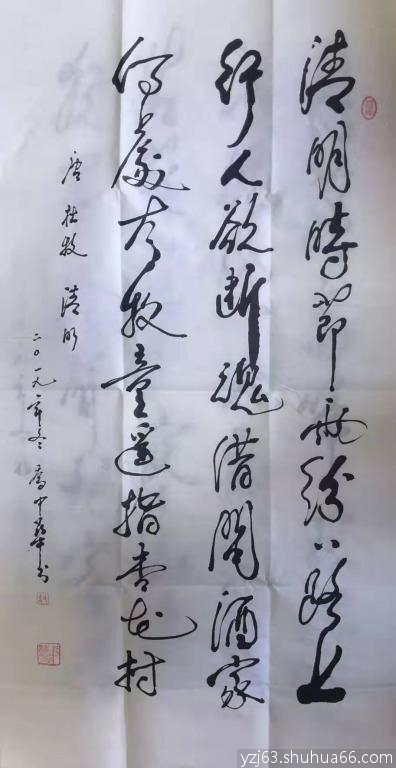 清明時節雨紛〻路上
行人欲断魂借問酒家
何處有牧童遥指杏花村
唐 杜牧 清明
二〇一九年冬 中華书
yzj63.shuhua66.com